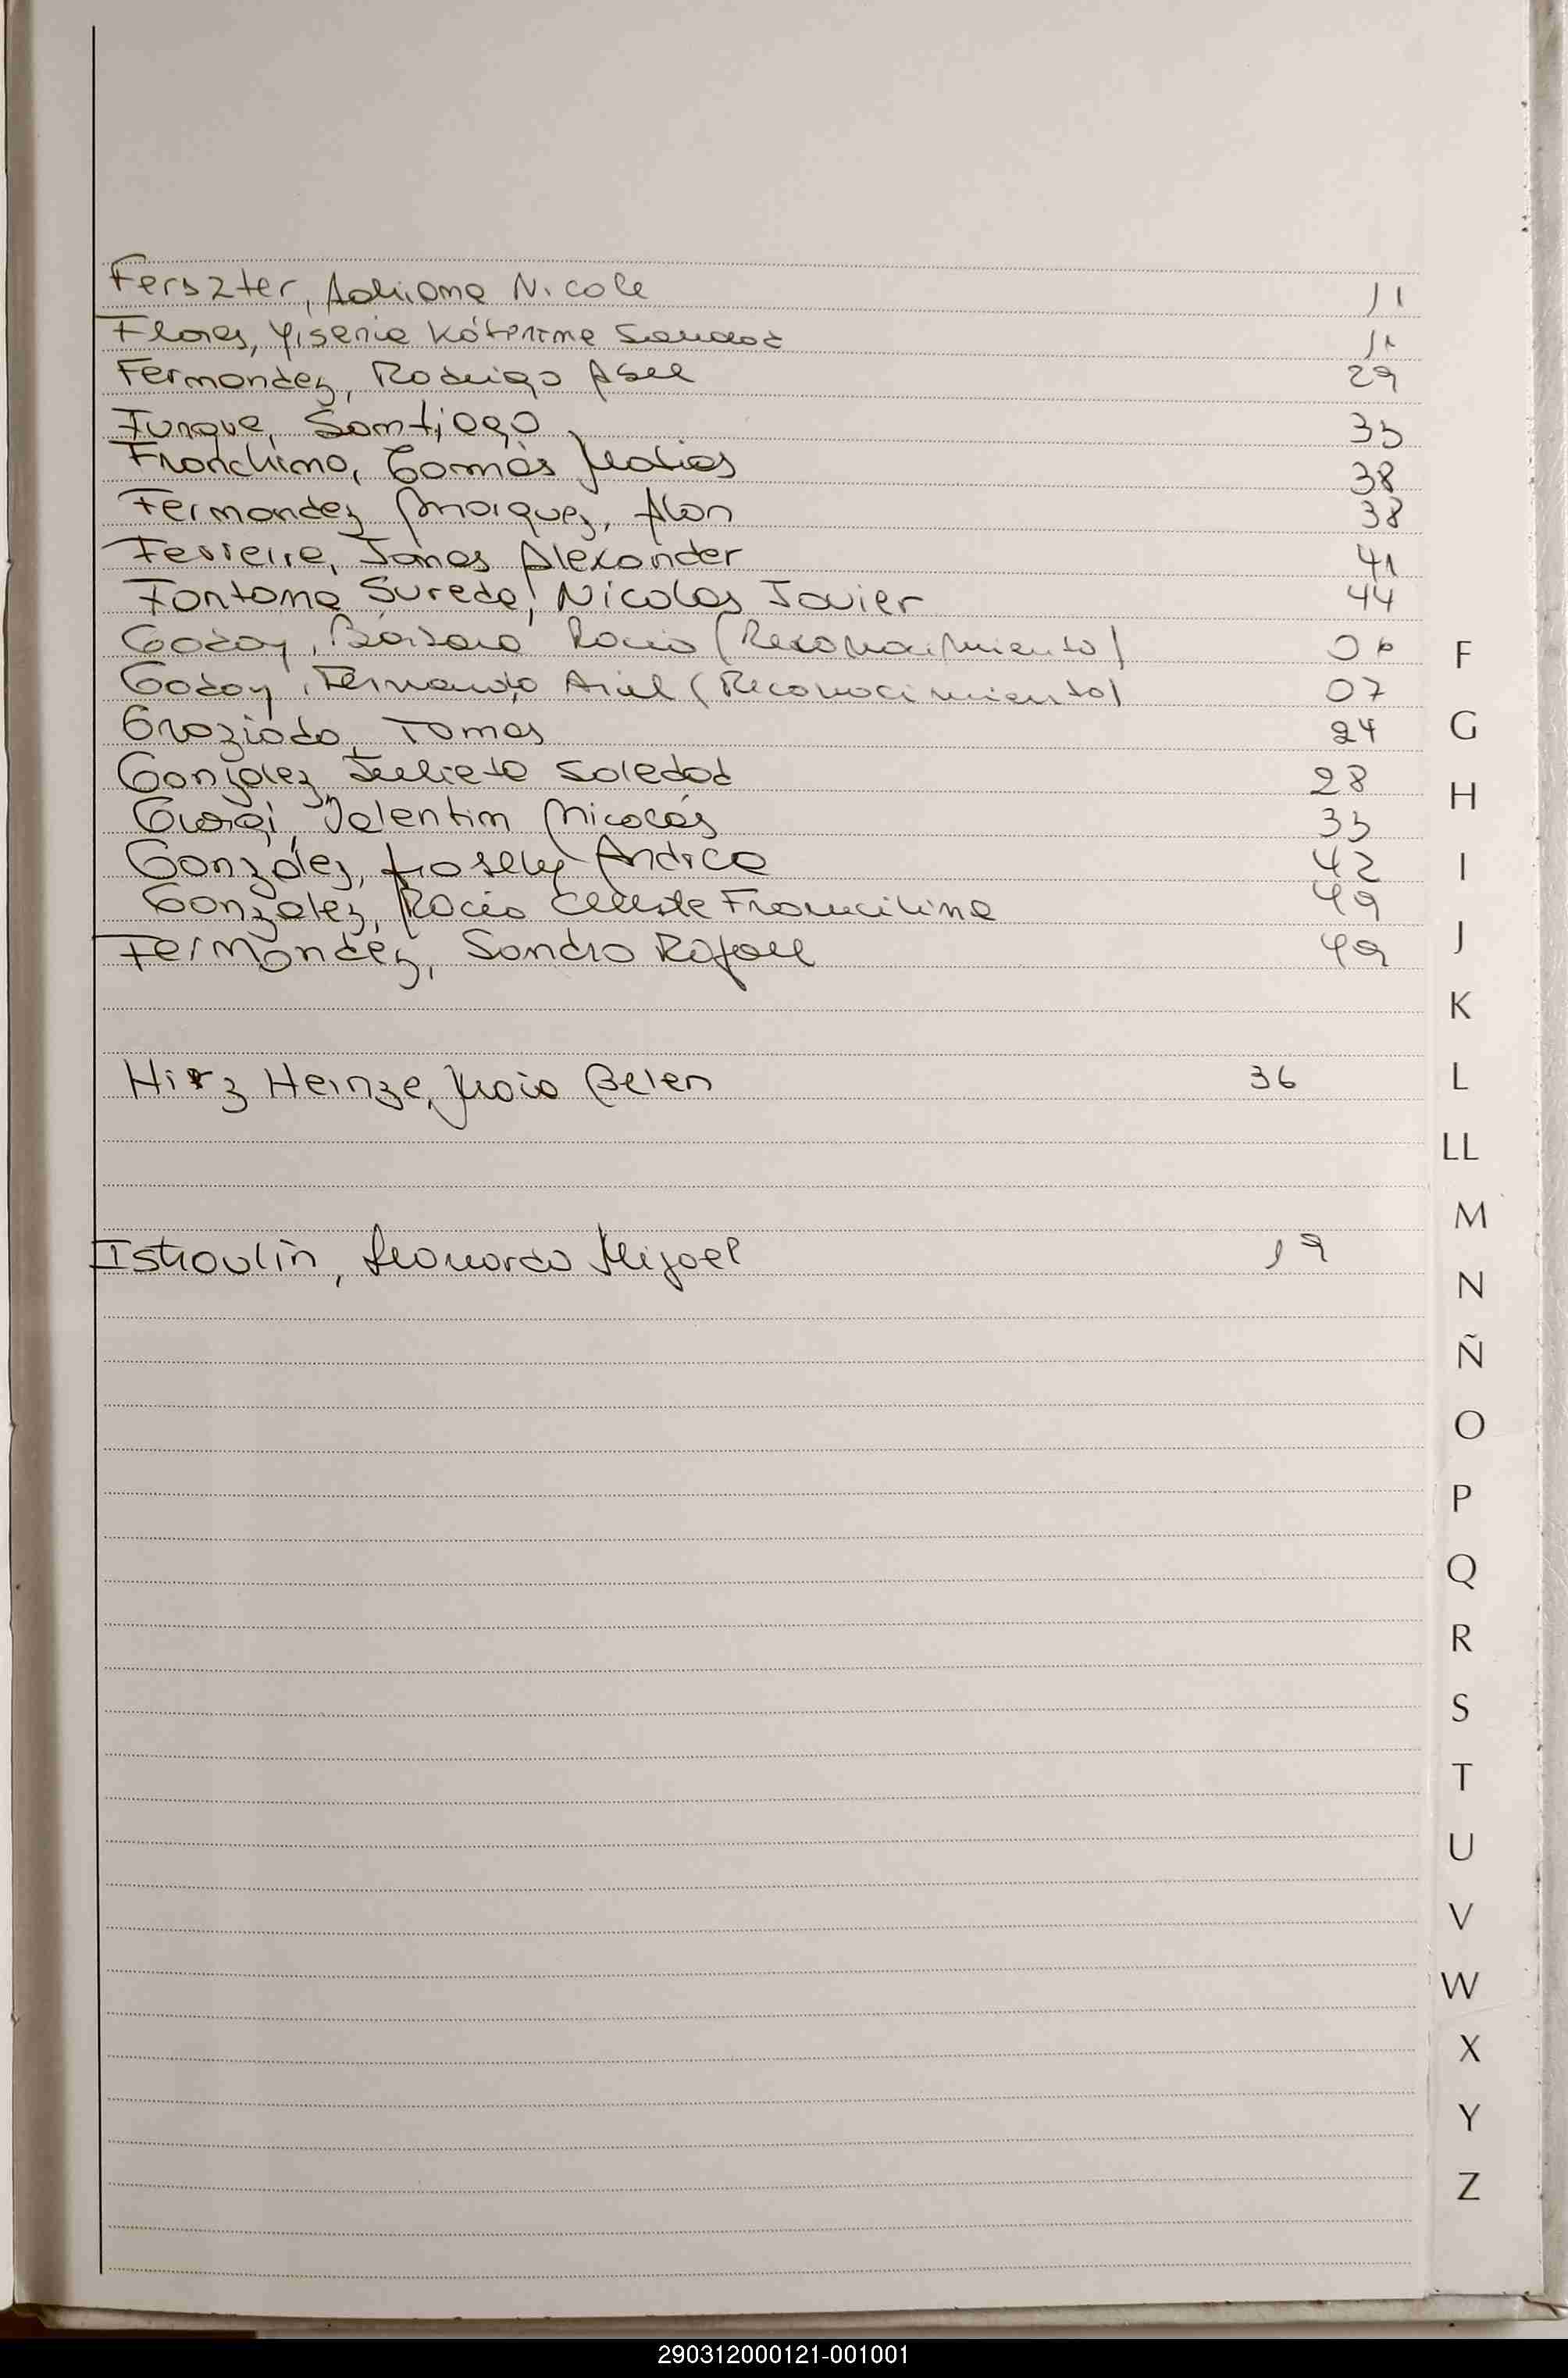 Ferszter, Adriana Nicole 11
Flores, Yisenia Káterine 11
Fernandez, Rodrigo Abel 29
Funque, Santiago 35
Franchino, Tomás Matias 38
Fernandez Marquez, Alan 38
Ferreira, Jonas Alexander 41
Fontana Sureda, Nicolas Javier 44
Godoy, Bárbara Rocio (Reconocimiento) 06
Godoy, Fernando Ariel (Reconocimiento) 07
Graziado, Tomas 24
Gonzalez, Julieta Soledad 28
Giorgi, Valentin Nicolás 35
González, Andrea 42
Gonzalez, Rocio Celeste 49
Fernández, Sandro Rafael 49
Hirz Heinze, Maia Belen 36
Istroulin, Leonardo Miguel 19
F
G
H
I
J
K
L
LL
M
N
Ñ
O
P
Q
R
S
T
U
V
W
X
Y
Z
290312000121-001001